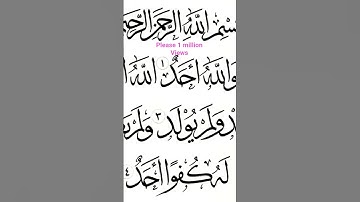 سْمِ اللَّهِ الرَّحْمَٰنِ الرَّحِ
Please 1 million
Views
وَاللَّهُ أَحَدٌ ١ اللَّهُ ا
دْ وَلَمْ يُولَدْ ٣ وَلَمْ يَ
لَهُ كُفُوًا أَحَدٌ ٤